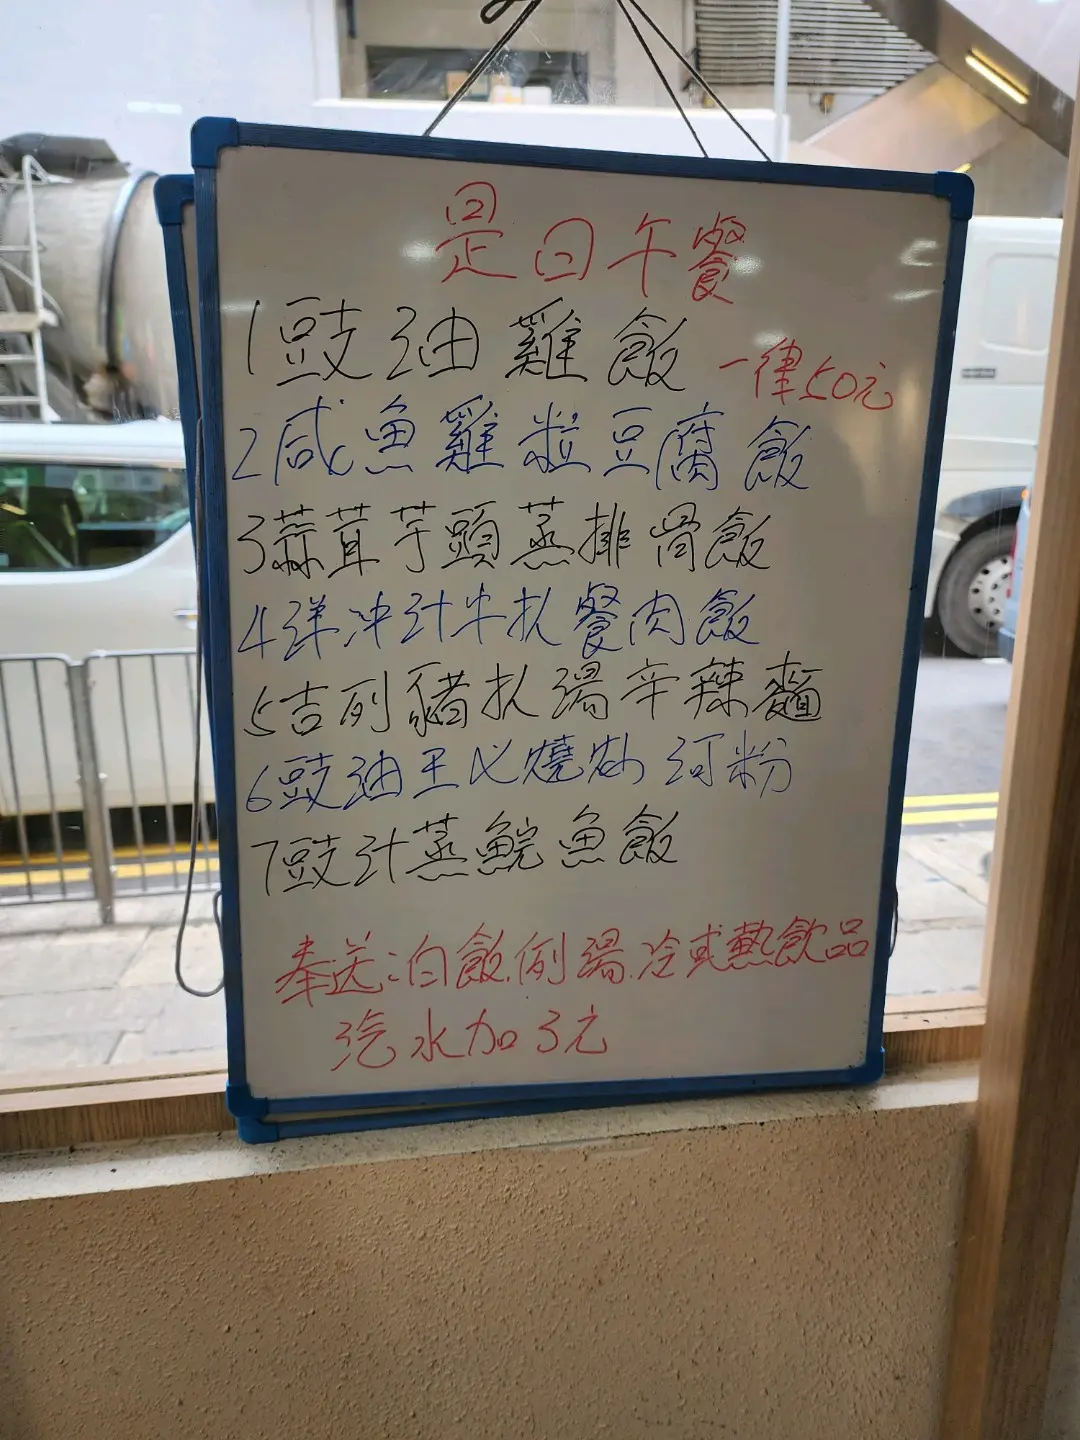 是日午餐
1豉油雞飯 一律50元
2咸魚雞粒豆腐飯
3蒜茸芋頭蒸排骨飯
4洋冲汁牛扒餐肉飯
5吉列豬扒湯辛辣麵
6豉油王乂燒炒河粉
7豉汁蒸鯇魚飯
奉送:白飯.例湯.冷或熱飲品
汽水加3元